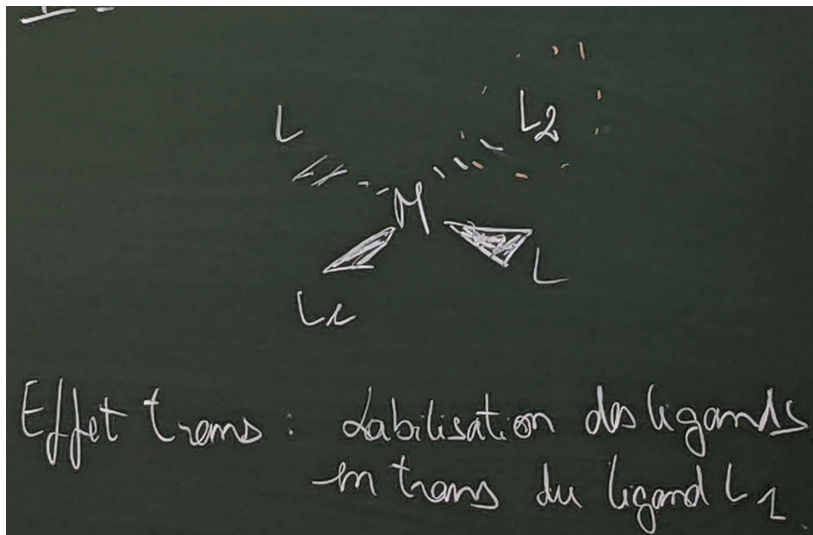 L
L2
M
L
L1
Effet trans : Labilisation des ligands
en trans du ligand L1